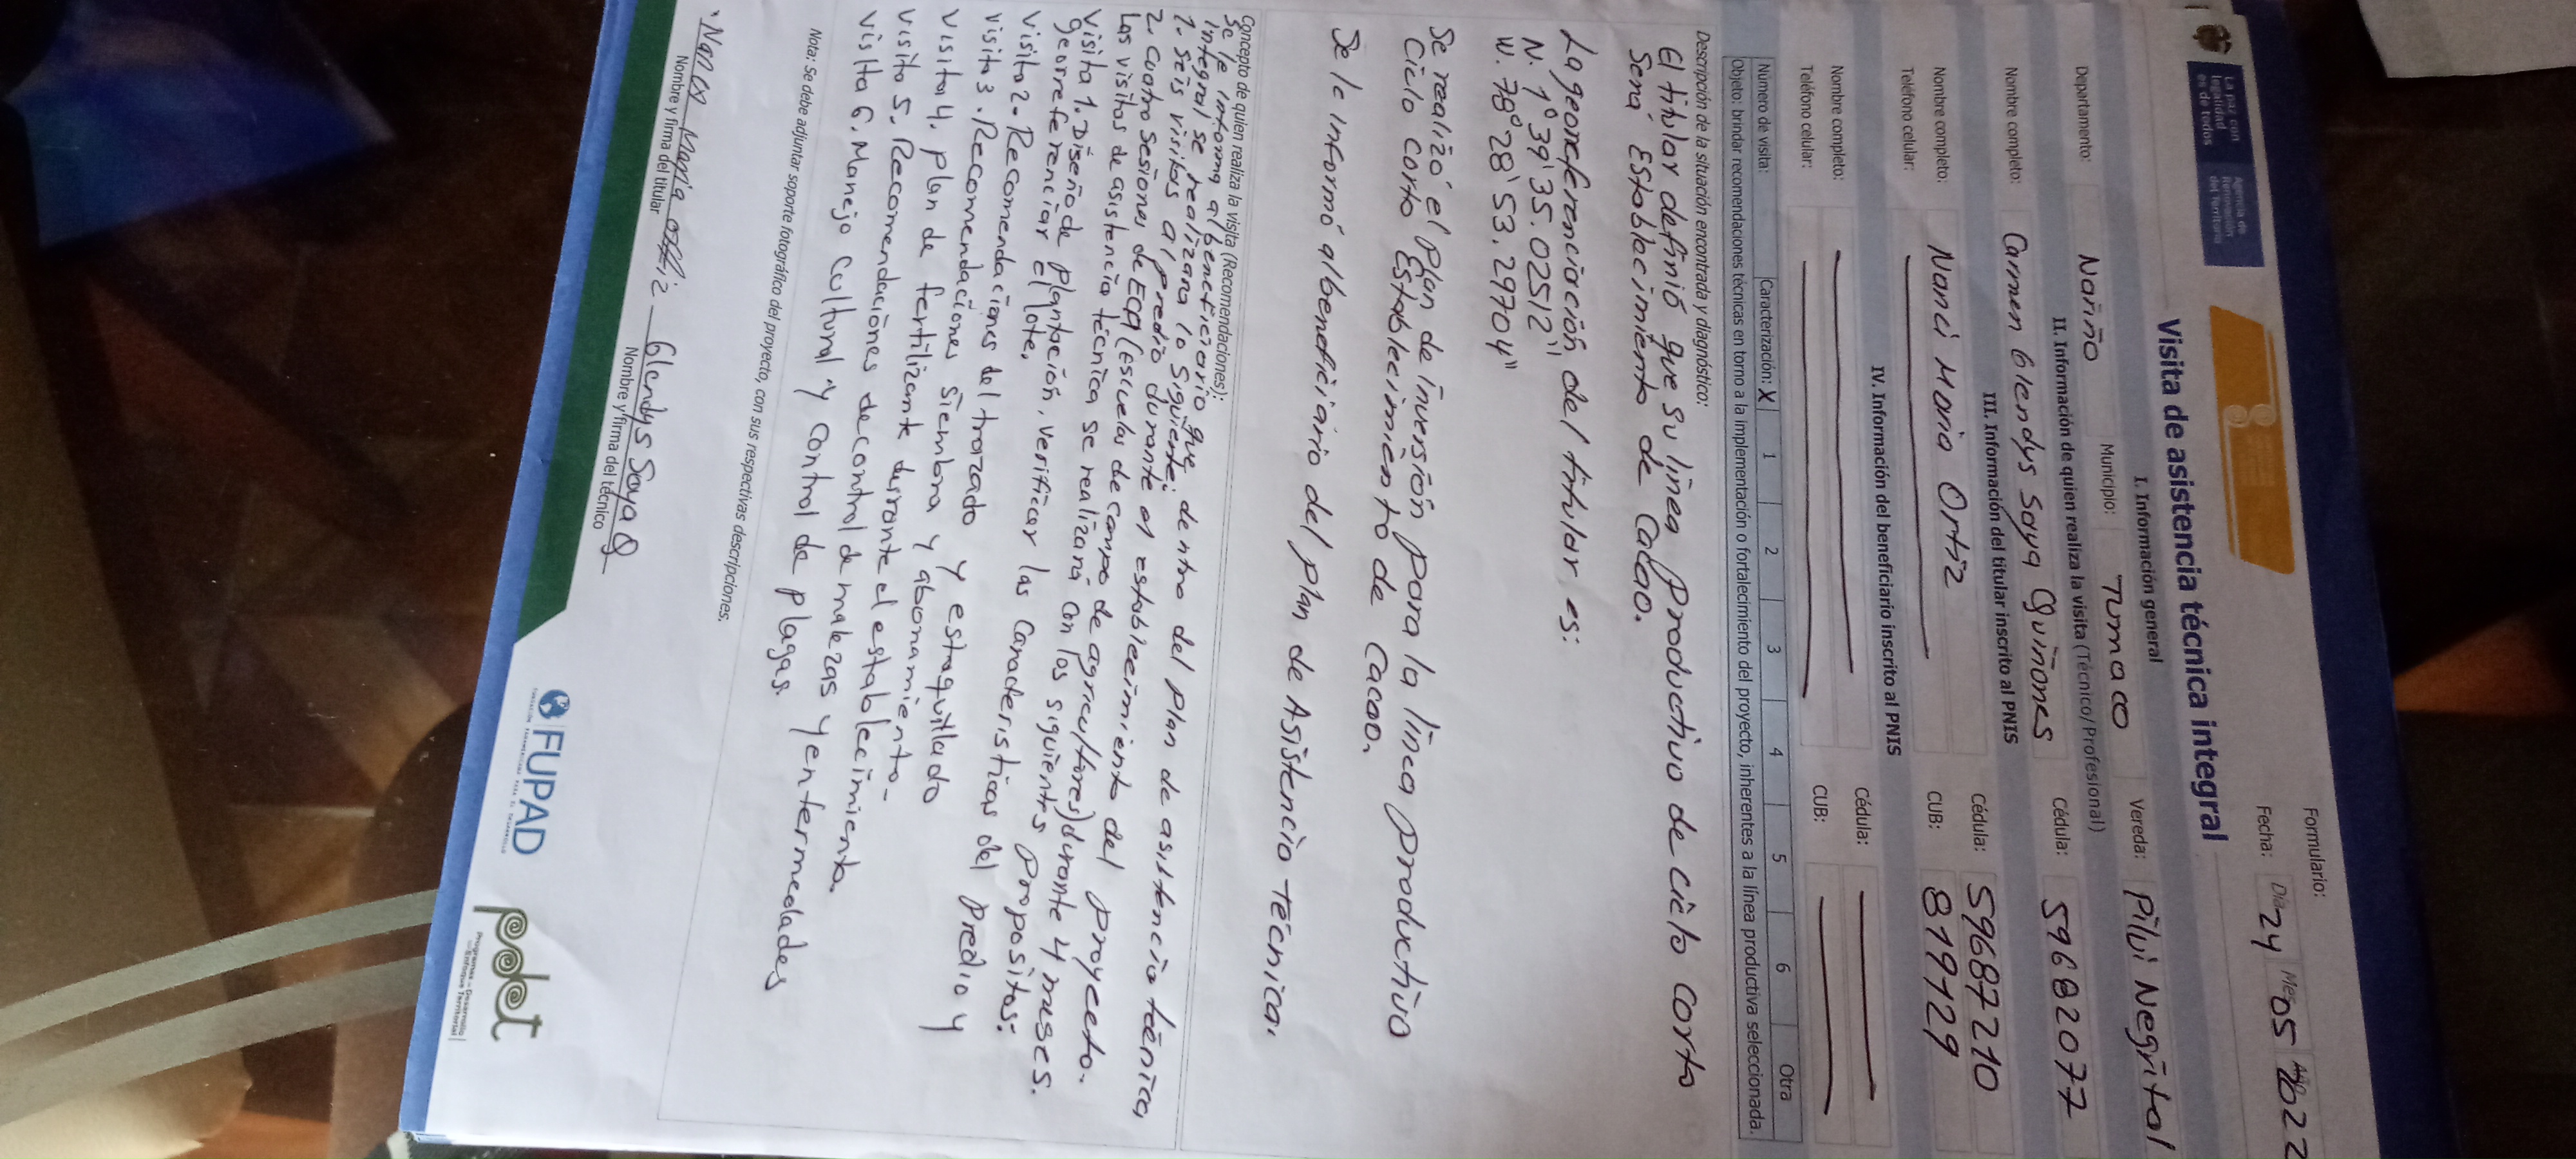 La paz con
legalidad
es de todos
Agencia de
Renovación
del Territorio
Formulario:
Fecha: Día 24 Mes 05 2022
Visita de asistencia técnica integral
I. Información general
Departamento: Nariño Municipio: Tumaco Vereda: Pilvi Negrital
II. Información de quien realiza la visita (Técnico/Profesional)
Nombre completo: Carmen Glendys Saya Quiñones Cédula: 59682077
III. Información del titular inscrito al PNIS
Nombre completo: Nanci Maria Ortiz Cédula: 59687210
Teléfono celular: CUB: 819729
IV. Información del beneficiario inscrito al PNIS
Nombre completo: Cédula:
Teléfono celular: CUB:
Número de visita: Caracterización: X 1 2 3 4 5 6 Otra
Objeto: brindar recomendaciones técnicas en torno a la implementación o fortalecimiento del proyecto, inherentes a la línea productiva seleccionada.
Descripción de la situación encontrada y diagnóstico:
El titular definió que su linea productivo de ciclo corto
Será Establecimiento de Cacao.
La georeferenciación del titular es:
N. 1° 39' 35.02512"
W. 78° 28' 53.29704"
Se realizó el plan de inversión para la linea productivo
Ciclo corto Establecimiento de Cacao.
Se le informó al beneficiario del plan de Asistencia Técnica.
Concepto de quien realiza la visita (Recomendaciones):
Se le informa al beneficiario que, dentro del plan de asistencia técnica,
integral se realizara lo siguiente:
1. Seis visitas al predio durante el establecimiento del proyecto.
2. Cuatro Sesiones de ECA (escuelas de campo de agricultores) durante 4 meses.
Las visitas de asistencia técnica se realizará con los siguientes propositos:
Visita 1. Diseño de plantación, verificar las caracteristicas del predio y
georeferenciar el lote.
Visita 2. Recomendaciones del trazado y estaquillado
Visita 3. Recomendaciones siembra y abonamiento.
Visita 4. plan de fertilizante durante el establecimiento.
Visita 5. Recomendaciones de control de malezas y enfermedades
Visita 6. Manejo cultural y control de plagas.
Nota: Se debe adjuntar soporte fotográfico del proyecto, con sus respectivas descripciones.
Nancy Maria Ortiz Glendys Saya Q
Nombre y firma del titular Nombre y firma del técnico
FUPAD
pdet
Programas de Desarrollo
con Enfoque Territorial